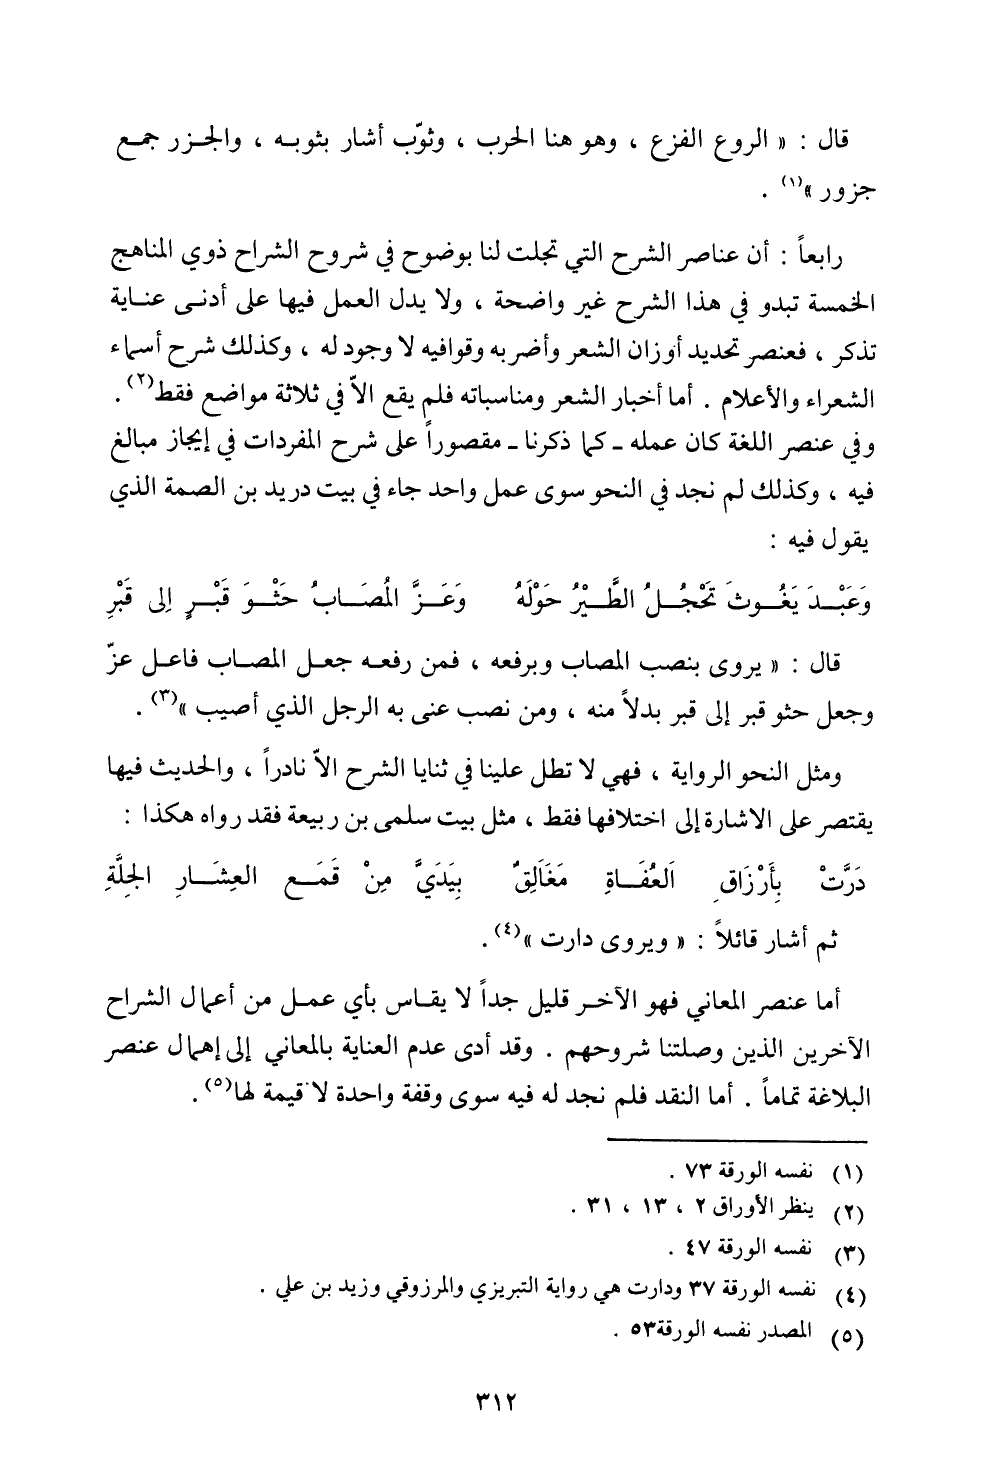 قال : « الروع الفزع ، وهو هنا الحرب ، وثوّب أشار بثوبه ، والجزر جمع
جزور »(١) .
رابعاً : أن عناصر الشرح التي تجلت لنا بوضوح في شروح الشراح ذوي المناهج
الخمسة تبدو في هذا الشرح غير واضحة ، ولا يدل العمل فيها على أدنى عناية
تذكر ، فعنصر تحديد أوزان الشعر وأضربه وقوافيه لا وجود له ، وكذلك شرح أسماء
الشعراء والأعلام . أما أخبار الشعر ومناسباته فلم يقع الاّ في ثلاثة مواضع فقط(٢) .
وفي عنصر اللغة كان عمله ـ كما ذكرنا ـ مقصوراً على شرح المفردات في إيجاز مبالغ
فيه ، وكذلك لم نجد في النحو سوى عمل واحد جاء في بيت دريد بن الصمة الذي
يقول فيه :
وَعَبْدَ يَغُوثَ تَحْجُلُ الطَّيْرُ حَوْلَهُ وَعَزَّ المُصَابُ حَثْوَ قَبْرٍ اِلى قَبْرِ
قال : « يروى بنصب المصاب وبرفعه ، فمن رفعه جعل المصاب فاعل عزّ
وجعل حثو قبر إلى قبر بدلاً منه ، ومن نصب عنى به الرجل الذي أصيب »(٣) .
ومثل النحو الرواية ، فهي لا تطل علينا في ثنايا الشرح الاّ نادراً ، والحديث فيها
يقتصر على الاشارة إلى اختلافها فقط ، مثل بيت سلمى بن ربيعة فقد رواه هكذا :
دَرَّتْ بِأَرْزَاقِ اَلعُفَاةِ مَغَالِقٌ بِيَدَيَّ مِنْ قَمَع العِشَارِ الجِلَّةِ
ثم أشار قائلاً : « ويروى دارت »(٤) .
أما عنصر المعاني فهو الآخر قليل جداً لا يقاس بأي عمل من أعمال الشراح
الآخرين الذين وصلتنا شروحهم . وقد أدى عدم العناية بالمعاني إلى إهمال عنصر
البلاغة تماماً . أما النقد فلم نجد له فيه سوى وقفة واحدة لا قيمة لها(٥) .
(١) نفسه الورقة ٧٣ .
(٢) ينظر الأوراق ٢ ، ١٣ ، ٣١ .
(٣) نفسه الورقة ٤٧ .
(٤) نفسه الورقة ٣٧ ودارت هي رواية التبريزي والمرزوقي وزيد بن علي .
(٥) المصدر نفسه الورقة٥٣ .
٣١٢